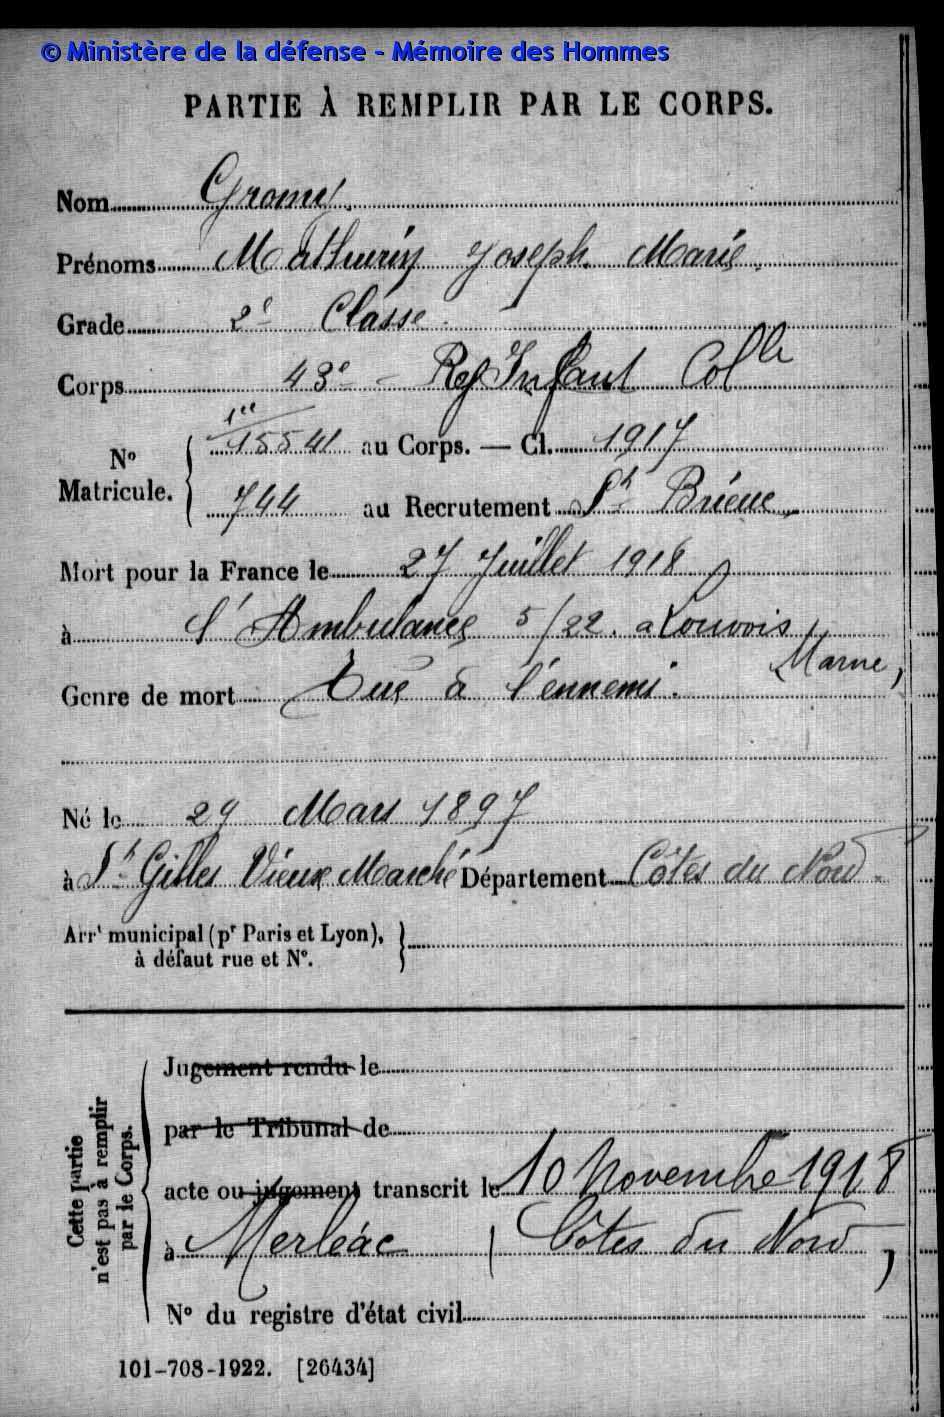 © Ministère de la défense - Mémoire des Hommes
PARTIE À REMPLIR PAR LE CORPS.
Nom Gromy.
Prénoms Mathurin Joseph Marie.
Grade 2e Classe.
Corps 43e - Reg Infant Colle
1re
15541 au Corps. — Cl. 1917
No Matricule.
744 au Recrutement St Brieuc
Mort pour la France le 27 Juillet 1918
à l'Ambulance 5/22. a Louvois
Marne,
Genre de mort Tué à l'ennemi.
Né le 29 Mars 1897
à St Gilles Vieux Marché Département Côtes du Nord.
Arrt municipal (pr Paris et Lyon),
à défaut rue et No.
Cette partie
n'est pas à remplir
par le Corps.
Jugement rendu le
par le Tribunal de
acte ou jugement transcrit le 10 Novembre 1918
à Merléac (Côtes du Nord)
No du registre d'état civil
101-708-1922. [26434]